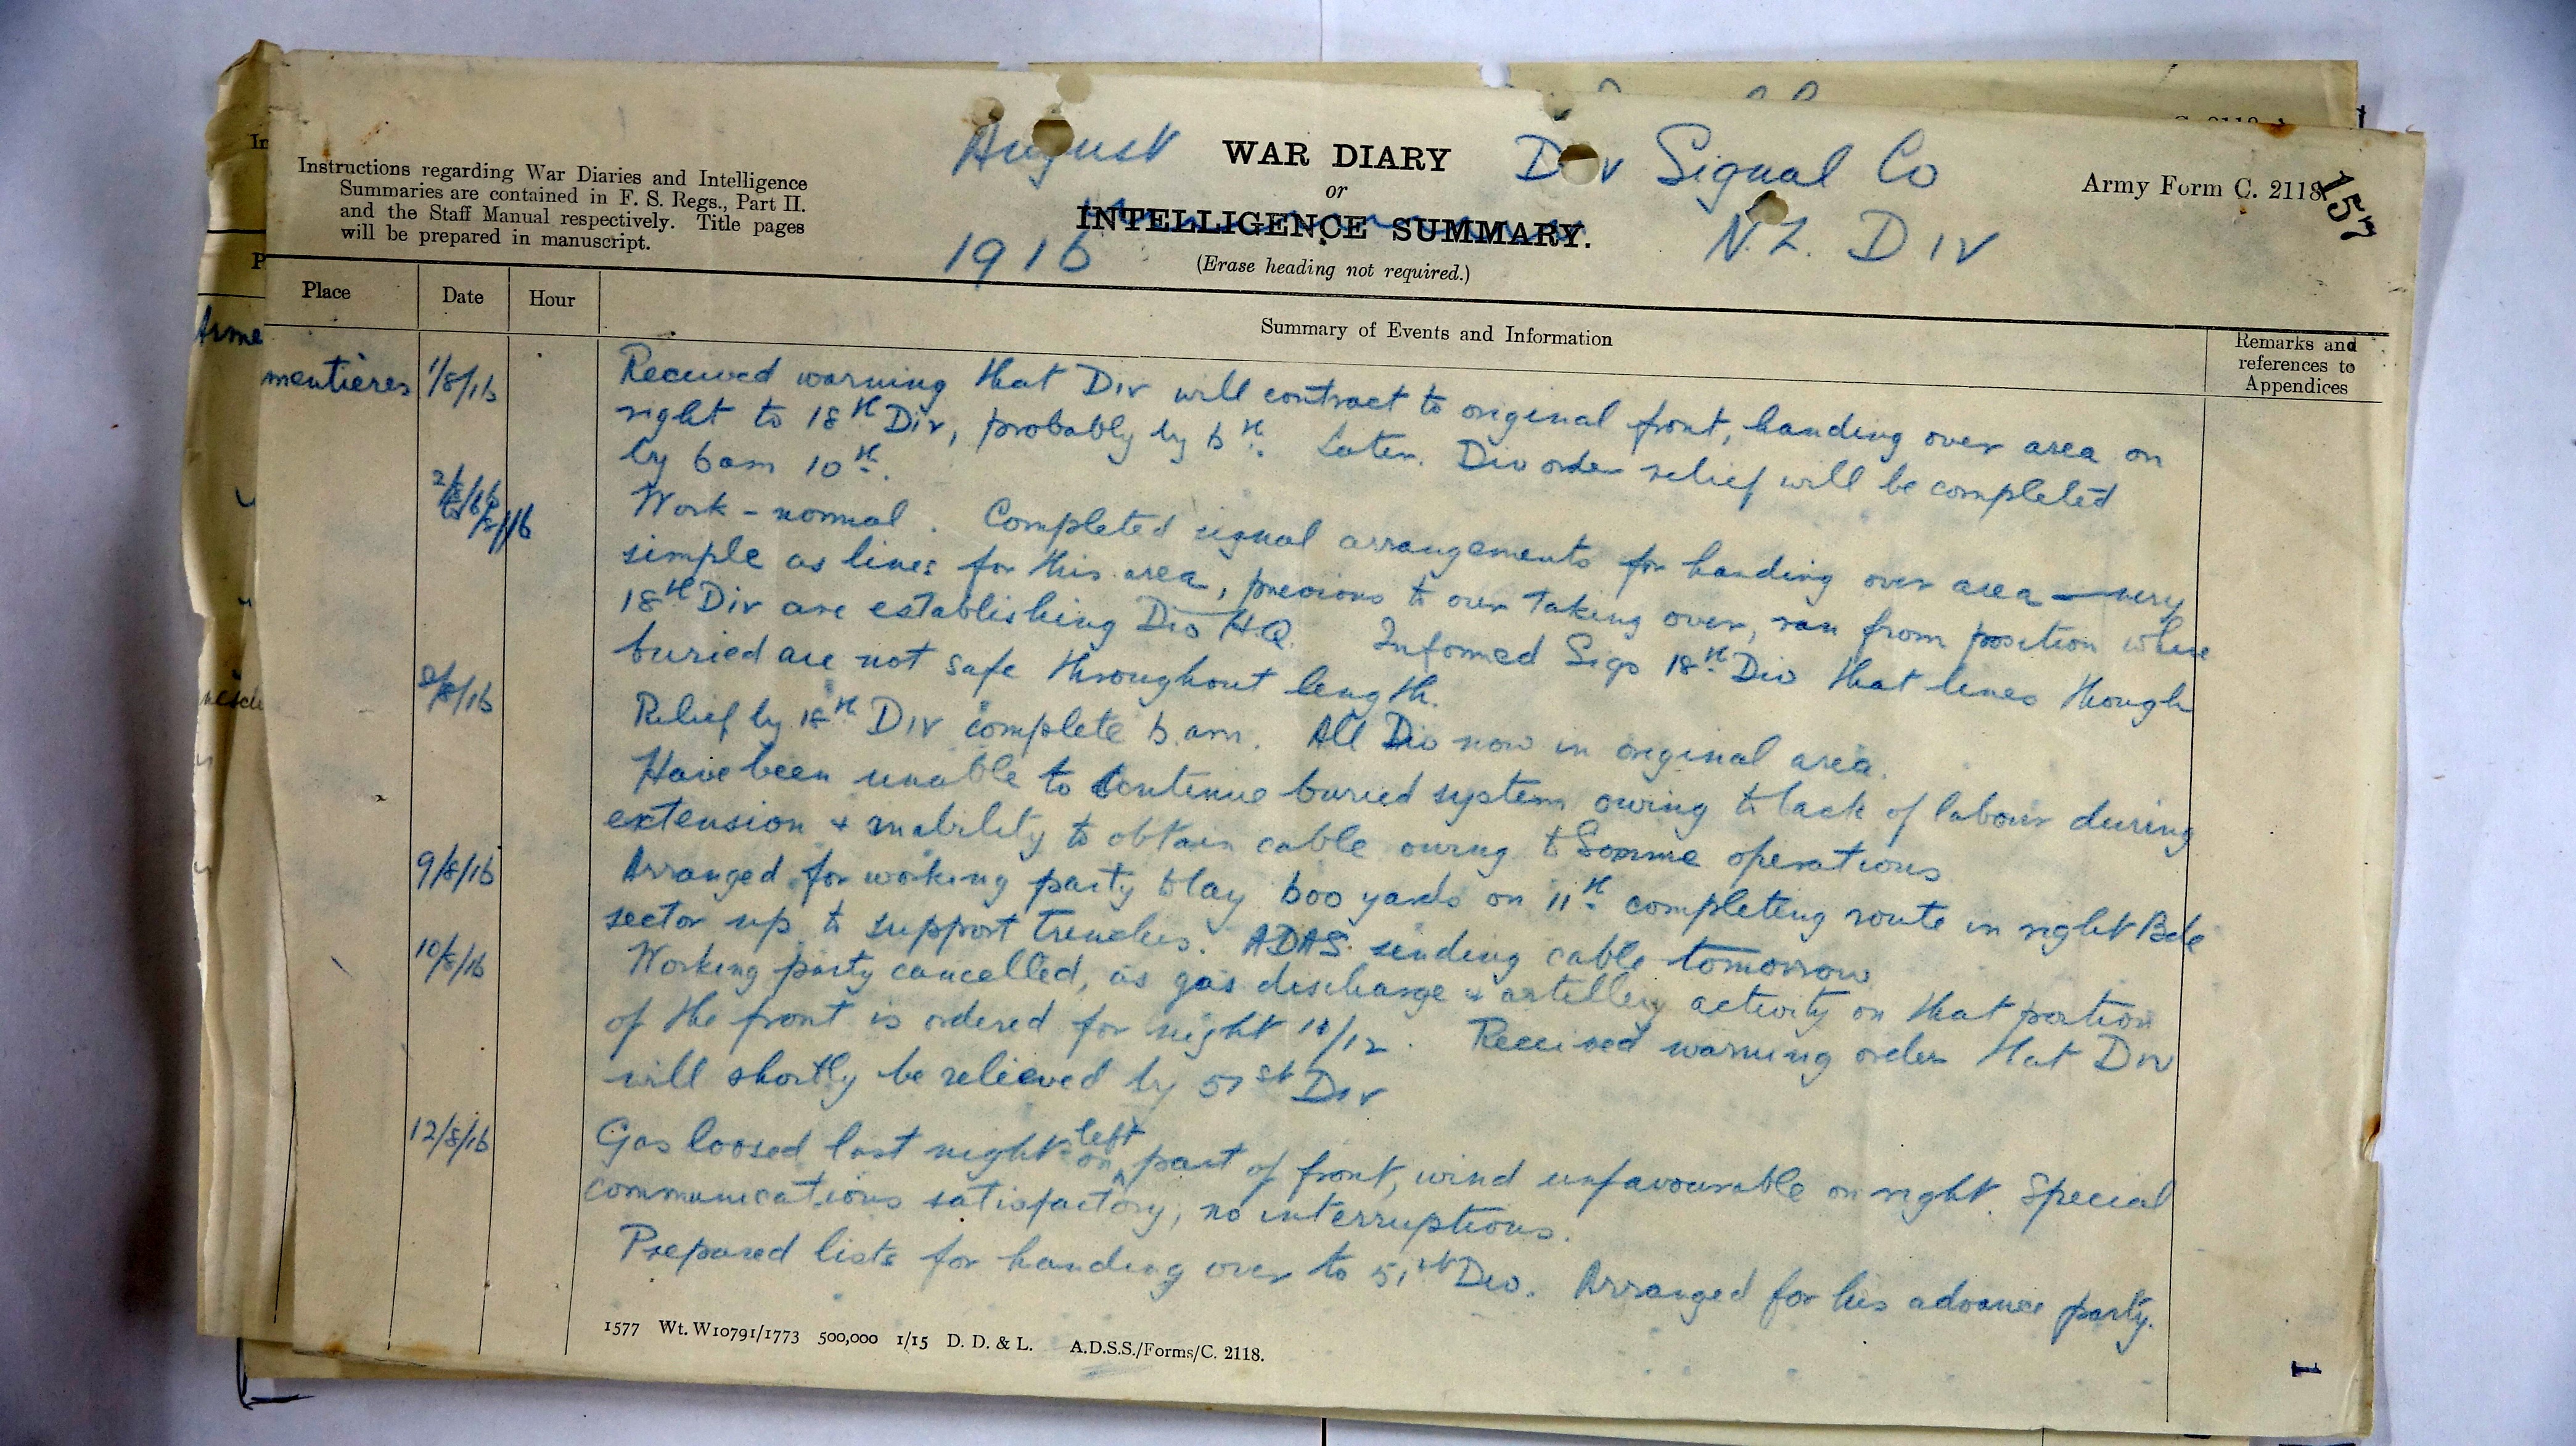 August
WAR DIARY
Div Signal Co
Army Form C. 2118
157
or
INTELLIGENCE SUMMARY.
1916
N.Z. DIV
(Erase heading not required.)
Instructions regarding War Diaries and Intelligence
Summaries are contained in F. S. Regs., Part II.
and the Staff Manual respectively. Title pages
will be prepared in manuscript.
Place
Date
Hour
Summary of Events and Information
Remarks and
references to
Appendices
Arme
mentières 1/8/16 Received warning that Div will contract to original front, handing over area on
right to 18th Div, probably by 6th. Later. Div order relief will be completed
by 6am 10th.
Work – normal. Completed signal arrangements for handing over area – very
simple as lines for this area, previous to our taking over, ran from position where
18th Div are establishing Div H.Q. Informed Sigs 18th Div that lines though
buried are not safe throughout length.
8/8/16 Relief by 18th Div complete 6 am. All Div now in original area.
Have been unable to continue buried system owing to lack of labour during
extension & inability to obtain cable owing to Somme operations
9/8/16 Arranged for working party to lay 600 yards on 11th completing route in right Bde
sector up to support trenches. ADAS sending cable tomorrow
10/8/16 Working party cancelled, as gas discharge & artillery activity on that portion
of the front is ordered for night 11/12. Received warning order that Div
will shortly be relieved by 51st Div
12/8/16 Gas loosed last night on left part of front, wind unfavourable on right. Special
communications satisfactory, no interruptions.
Prepared lists for handing over to 51st Div. Arranged for his advance party.
1577 Wt. W10791/1773 500,000 1/15 D. D. & L. A.D.S.S./Forms/C. 2118.
1